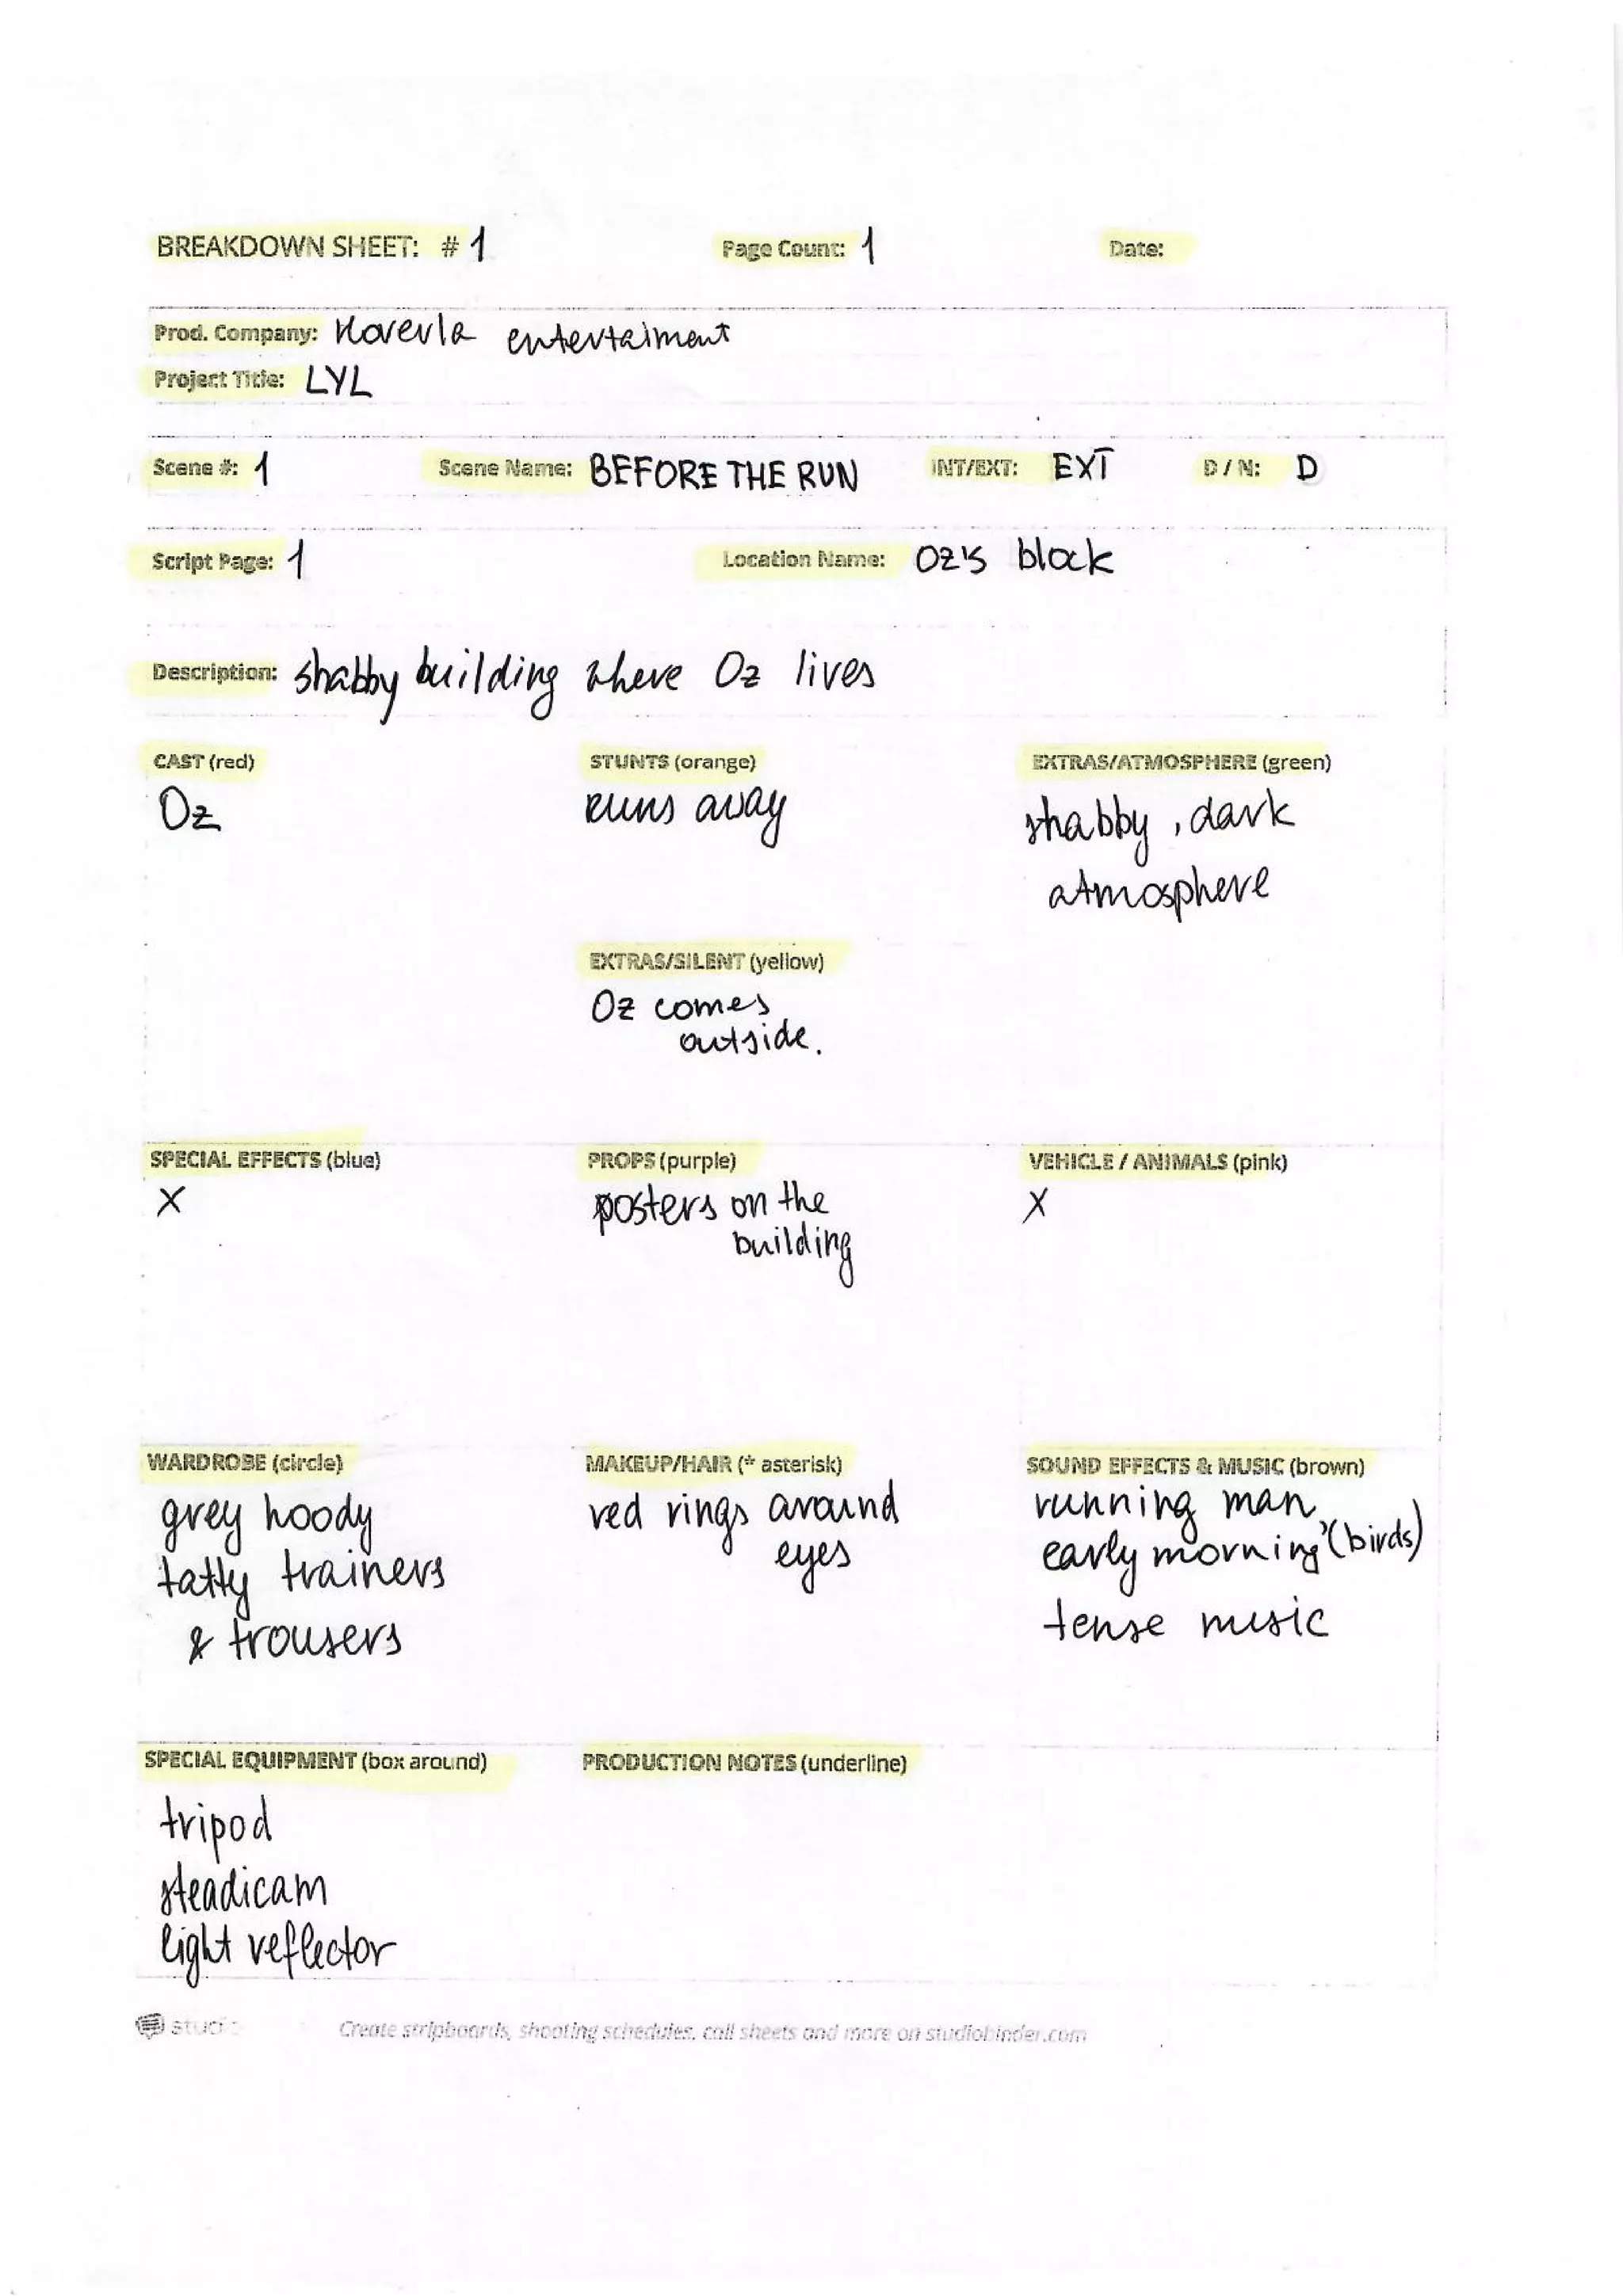 BREAKDOWN SHEET: # 1 Page Count: 1 Date:
Prod. Company: Hoverla entertaiment
Project Title: LYL
Scene #: 1 Scene Name: BEFORE THE RUN INT/EXT: EXT D / N: D
Script Page: 1 Location Name: Oz's block
Description: shabby building where Oz lives
CAST (red) STUNTS (orange) EXTRAS/ATMOSPHERE (green)
Oz runs away shabby, dark
atmosphere
EXTRAS/SILENT (yellow)
Oz comes
outside.
SPECIAL EFFECTS (blue) PROPS (purple) VEHICLE / ANIMALS (pink)
X posters on the X
building
WARDROBE (circle) MAKEUP/HAIR (* asterisk) SOUND EFFECTS & MUSIC (brown)
grey hoody red rings around running man,
tatty trainers eyes early morning (birds)
& trousers tense music
SPECIAL EQUIPMENT (box around) PRODUCTION NOTES (underline)
tripod
steadicam
light reflector
Create stripboards, shooting schedules, call sheets and more on studiobinder.com